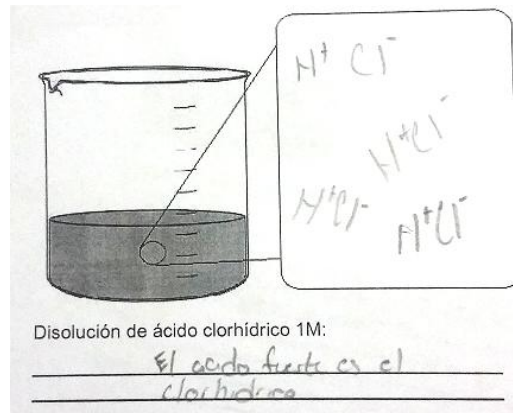 H⁺ Cl⁻
H⁺Cl⁻
H⁺Cl⁻
H⁺Cl⁻
Disolución de ácido clorhídrico 1M:
El acido fuerte es el
clorhidrico